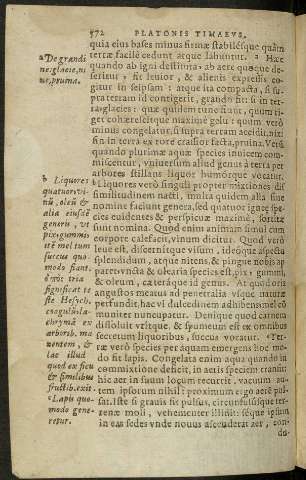 572 PLATONIS TIMAEVS.
quia eius bases minus firmæ stabilésque quàm
terræ facilè cedunt atque labuntur. ᵃ Hæc
quando ab igni destituta: ab aere quoque de-
seritur, fit leuior, & alienis expressis co-
gitur in seipsam: atque ita compacta, si su-
pra terram id contigerit, grando fit: si in ter-
ra, glacies: quæ quidem tunc fiunt, quum ri-
gor cohæresc
minus congelatur, si supra terram acciditnix:
sin in terra ex rore crassiore facta, pruina. Verùm
quando plurimæ aquæ species inuicem com-
miscentur, vniuersum aliud genus à terra per
arbores stillans liquor humórque vocatur.
ᵇ Liquores verò singuli propter mixtiones dis-
similitudinem nacti, multa quidem alia sine
nomine faciunt genera, sed quatuor igneæ spe-
cies euidentes & perspicuæ maximè, sortitæ
sunt nomina. Quod enim animam simul cum
corpore calefacit, vinum dicitur. Quod verò
leue est, discernitque visum, ideóque aspectu
splendidum, atque nitens, & pingue nobis ap-
paret: vncta & olearia species est, pix, gummi,
& oleum, cæteráque id genus. At quod oris
anguстos meatus ad penetralia vsque natura
perfundit, hac vi dulcedinem adhibens mel cō-
muniter nuncupatur. Denique quod carnem
dissoluit vritque, & spumeum est ex omnibus
secretum liquoribus, succus vocatur. ᶜ Ter-
ræ verò species per aquam emergens hoc mo-
do fit lapis. Congelata enim aqua quando in
commixtione deficit, in aeris speciem transit:
hic aer in suum locum recurrit. vacuum au-
tem ipsorum nihil: proximum ergo aerē pul-
sat. Iste si grauis fit pulsus, circunfususque ter-
renæ moli, vehementer illidit: séque ipsum
in eas sedes vnde nouus ascenderat aer, con-
du-
ᵃ De grandi
ne: glacie, ni
ue, pruina.
ᵇ Liquores
quatuor: vi-
nū, oleū &
alia eiusdē
generis, vt
pix gummis
itē mel tum
succus quo-
modo fiant.
significat te
ste Hesych.
coagulū la-
chryma ex
arborib. ma
nentem, &
lac illud
quod ex ficu
& similibus
fructib. exit.
ᶜ Lapis quo-
modo gene-
retur.